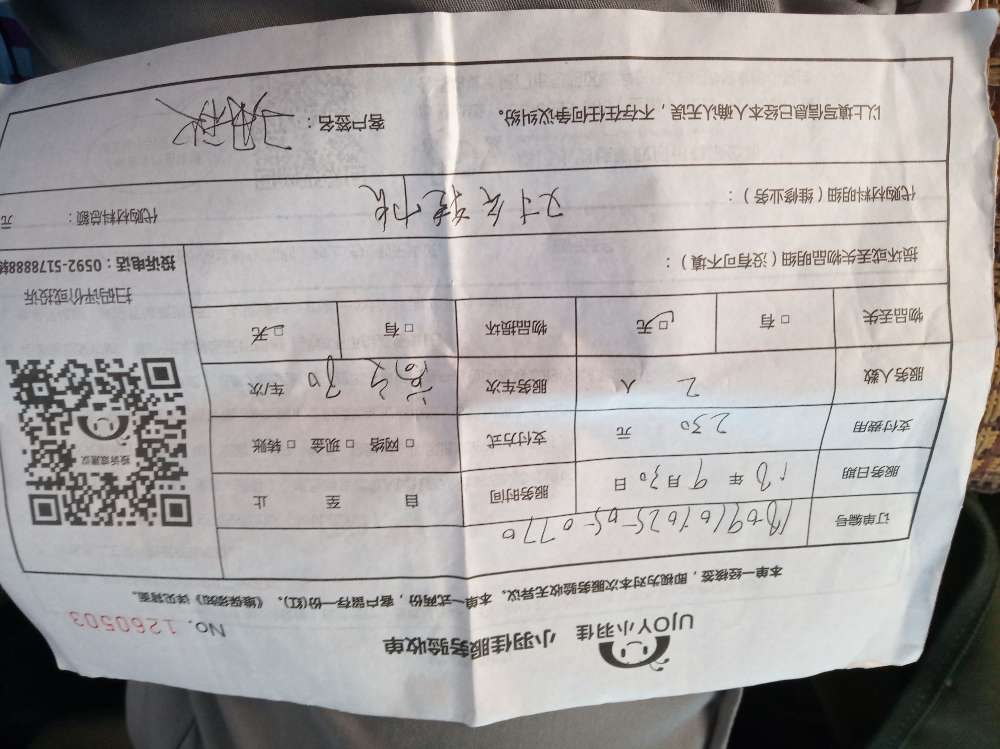 UJOY小羽佳 小羽佳服务验收单 No. 1260503
本单一经核签，即视为对本次服务验收无异议。本单一式两份，客户留存一份(红)。《维保须知》详见背面。
订单编号
服务日期 18 年 9 月 30 日 服务时间 自 至 止
支付费用 230 元 支付方式 □ 网络 □ 现金 □ 转账
服务人数 2 人 服务车次 车次
物品丢失 □ 有 □ 无 物品损坏 □ 有 □ 无
损坏或丢失物品明细（没有可不填）：
代购材料明细（维修业务）： 代购材料总额： 元
以上填写信息已经本人确认无误，不存在任何争议纠纷。 客户签名：
投诉或建议
扫码评价或投诉
投诉电话：0592-5178888转